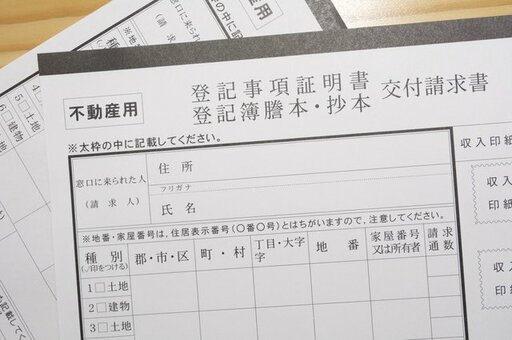 不動産用
登記事項証明書
登記簿謄本・抄本
交付請求書
※太枠の中に記載してください。
窓口に来られた人
(請求人)
住所
フリガナ
氏名
収入印紙
※地番・家屋番号は,住居表示番号(〇番〇号)とはちがいますので,注意してください。
種別
(✓印をつける)
郡・市・区
町・村
丁目・大字
字
地番
家屋番号
又は所有者
請求
通数
1□土地
2□建物
3□土地
不動産用
※太枠の中に記載し
窓口に来られた人
(請求人)
種別
4□
5□土地
6□建物
収入
印紙